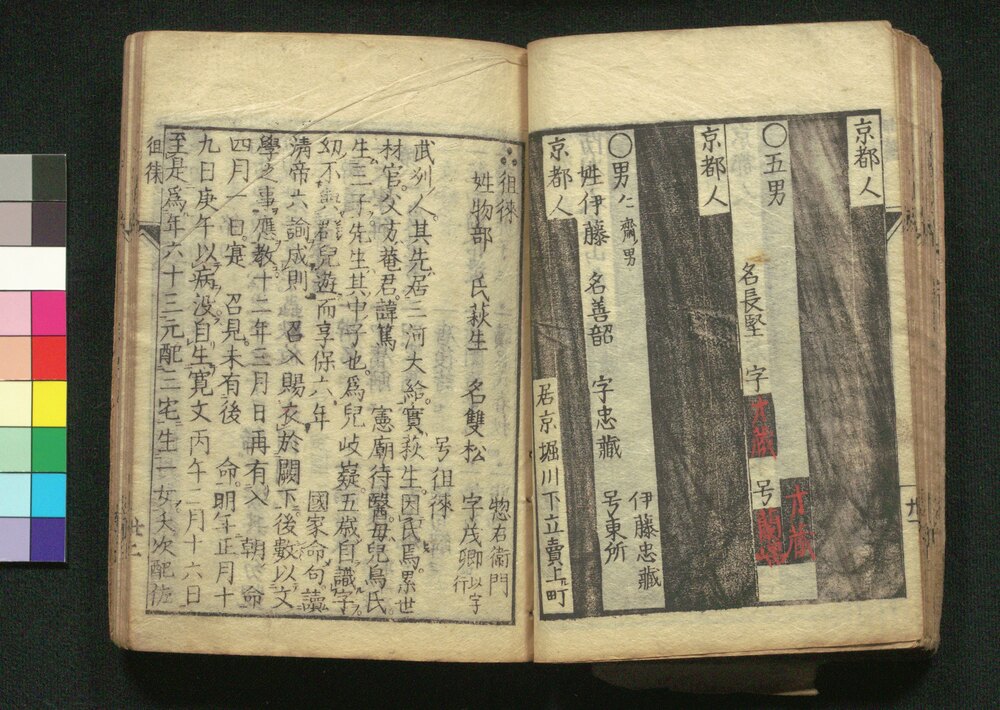 京都人
〇五男
名長堅 字
才蔵
号蘭嵎
才蔵
京都人
〇男仁齋男
姓伊藤 名善韶 字忠藏 号東所
伊藤忠藏
京都人 居京堀川下立賣上町
廿一
徂徠
姓物部 氏萩生 名雙松 字茂卿以字行
号徂徠 惣右衛門
武列人其先居三河大給實萩生因氏焉累世
材官父方菴君諱篤 憲廟待醫毋兒鳥氏
生三子先生其中子也爲兒岐嶷五歳自識字
幼不與群兒遊而享保六年 國家命句讀
清帝六諭成則 召入賜衣於闕下後數以文
學之事應教十二年三月日再有入 朝命
四月一日寔 召見未有後 命明年正月十
九日庚午以病没自生寛文丙午二月十六日
至是爲年六十三元配三宅生一女夭次配佐
徂徠
廿二